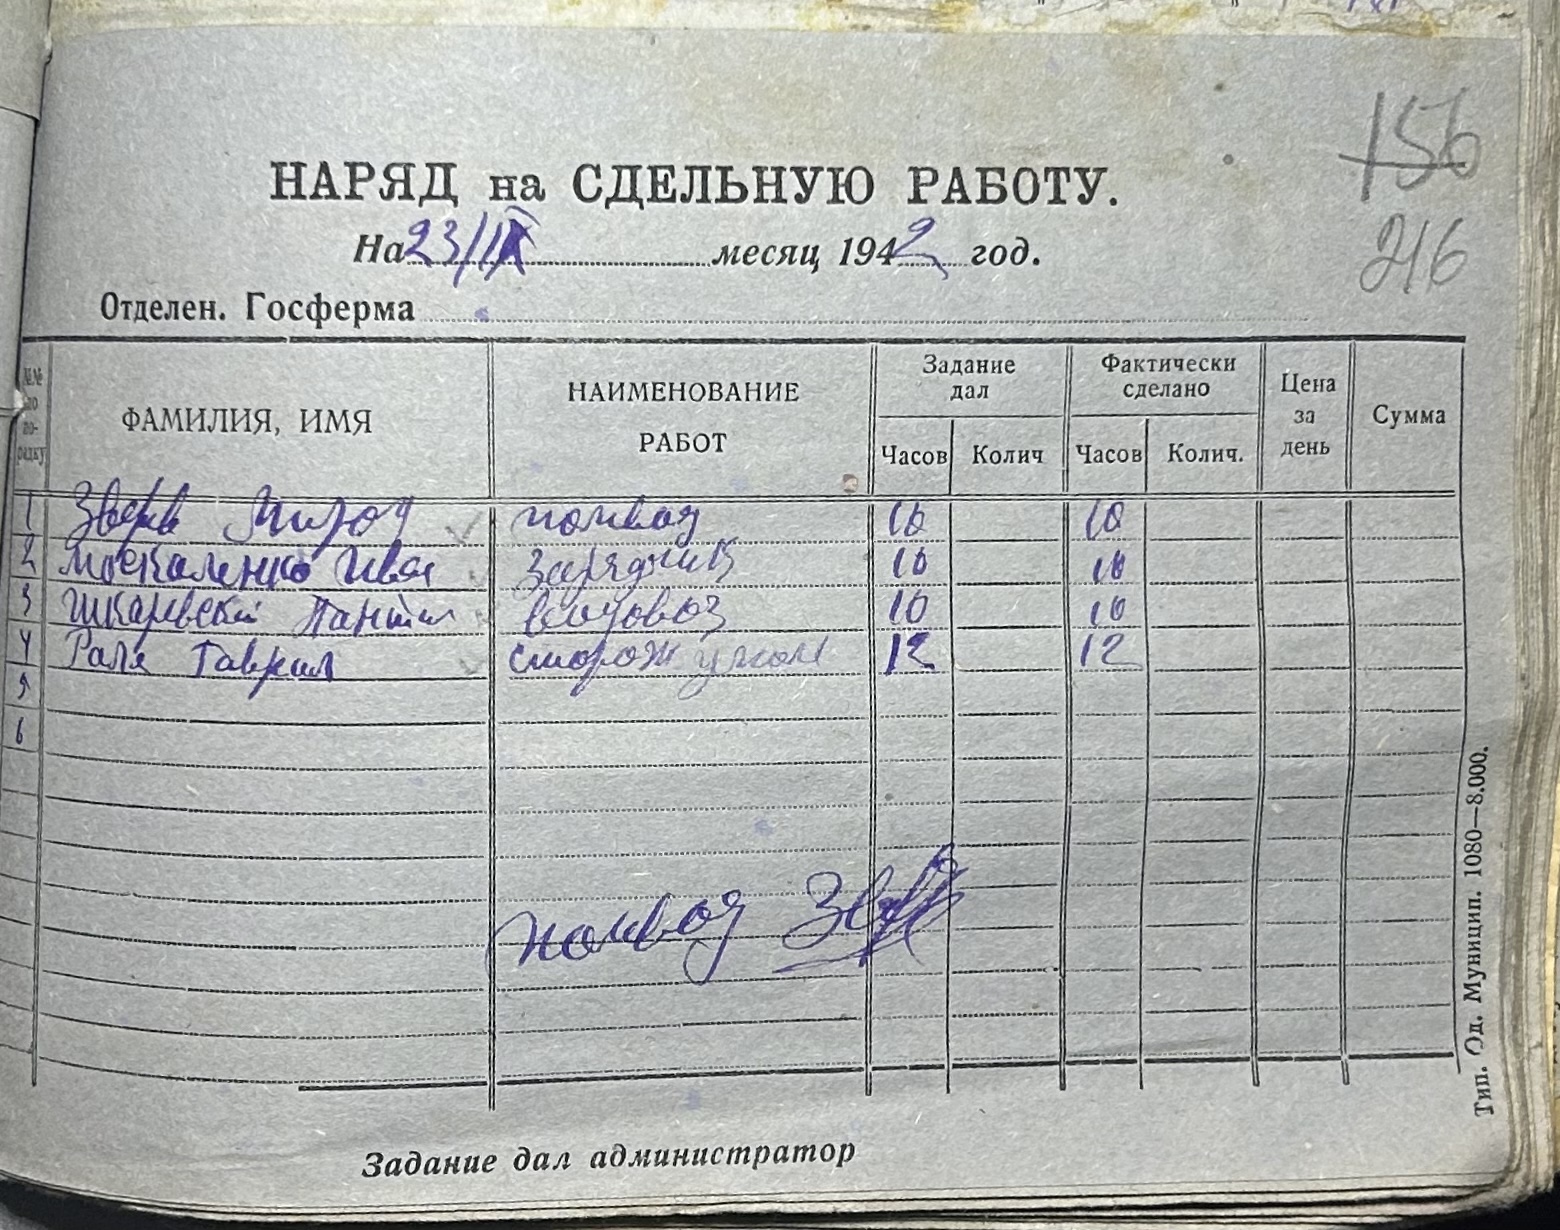 156
216
НАРЯД на СДЕЛЬНУЮ РАБОТУ.
На 23/IX месяц 1942 год.
Отделен. Госферма
№№ по по-рядку
ФАМИЛИЯ, ИМЯ
НАИМЕНОВАНИЕ РАБОТ
Задание дал
Фактически сделано
Цена за день
Сумма
Часов Колич Часов Колич.
1 Зверев помвод 10 10
2 Москаленко Иван 10 10
3 Шкаревский водовоз 10 10
4 Раля Гаврил сторож 12 12
5
6
помвод
Задание дал администратор
Тип. Од. Муницип. 1080—8.000.